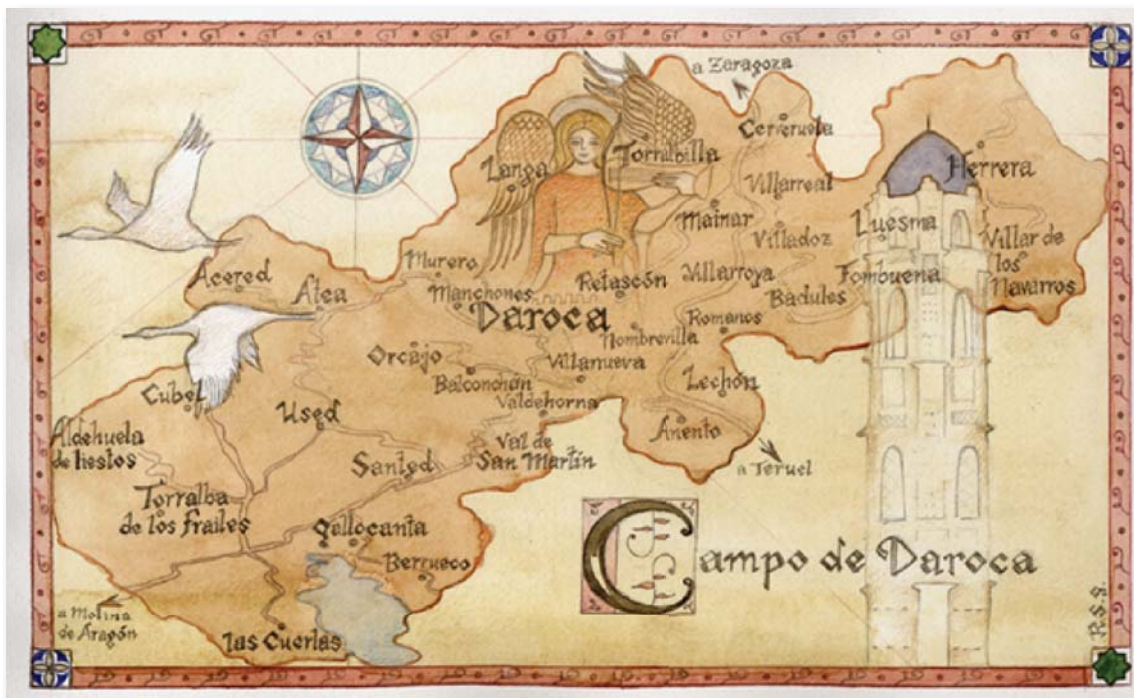 a Zaragoza
Cerveruela
Langa
Torralbilla
Herrera
Villarreal
Mainar
Luesma
Villadoz
Villar de
los
Navarros
Murero
Acered
Atea
Manchones
Retascón
Villarroya
Fombuena
Badules
Daroca
Romanos
Nombrevilla
Orcajo
Villanueva
Balconchán
Lechón
Cubel
Valdehorna
Used
Anento
Aldehuela
de liestos
Val de
San Martín
Santed
a Teruel
Torralba
de los frailes
Gallocanta
Berrueco
Campo de Daroca
a Molina
de Aragón
las Cuerlas
R.S.S.